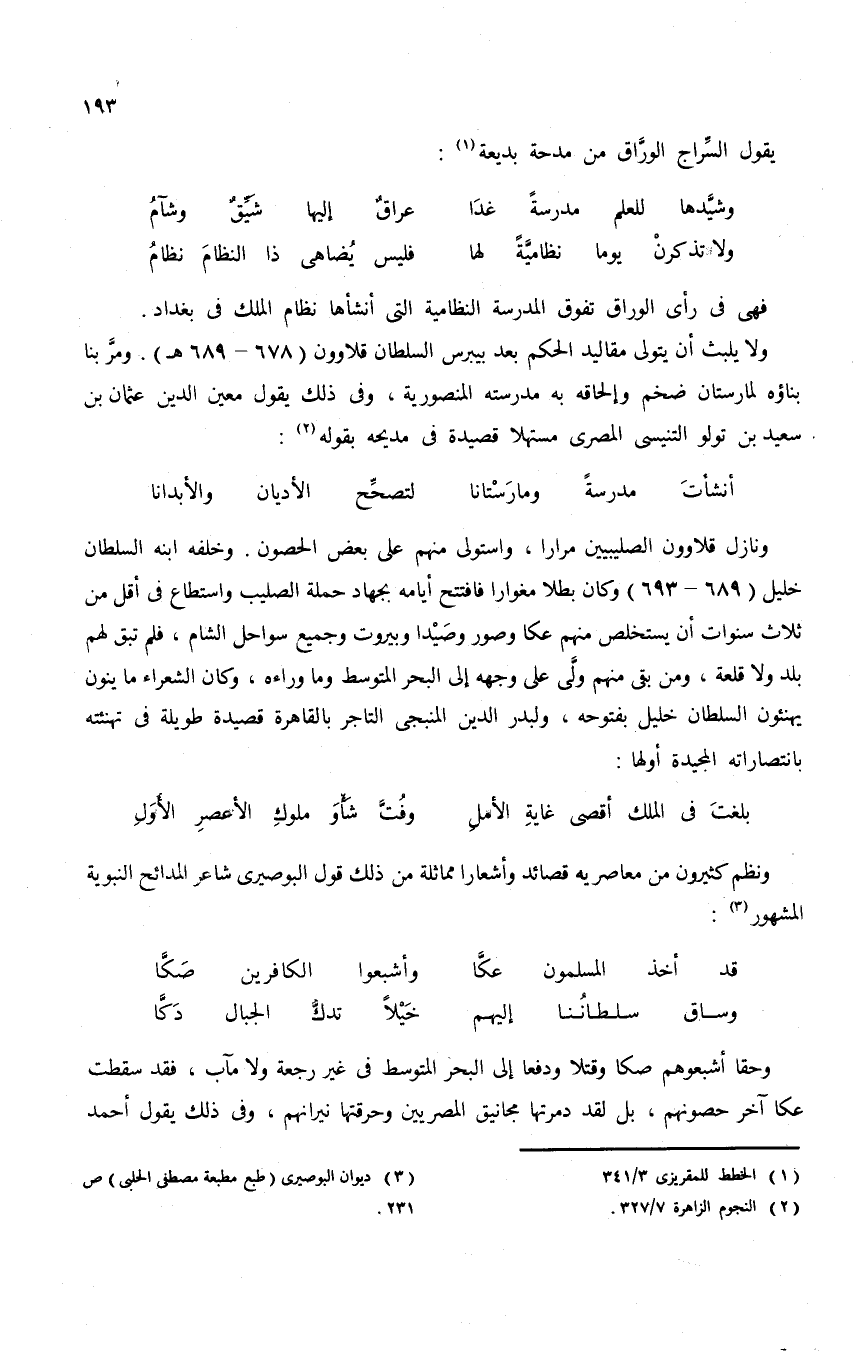 ١٩٣
يقول السِّراج الورَّاق من مدحة بديعة(١) :
وشيَّدها للعلم مدرسةً غدَا عراقٌ إليها شَيِّقٌ وشآمُ
ولا تذكرنْ يوما نظاميَّةً لها فليس يُضاهى ذا النظامَ نظامُ
فهى فى رأى الوراق تفوق المدرسة النظامية التى أنشأها نظام الملك فى بغداد .
ولا يلبث أن يتولى مقاليد الحكم بعد بيبرس السلطان قلاوون ( ٦٧٨ – ٦٨٩ هـ ) . ومرَّ بنا
بناؤه لمارستان ضخم وإلحاقه به مدرسته المنصورية ، وفى ذلك يقول معين الدين عثمان بن
سعيد بن تولو التنيسى المصرى مستهلا قصيدة فى مديحه بقوله(٢) :
أنشأتَ مدرسةً ومارَسْتانا لتصحِّح الأديان والأبدانا
ونازل قلاوون الصليبيين مرارا ، واستولى منهم على بعض الحصون . وخلفه ابنه السلطان
خليل ( ٦٨٩ – ٦٩٣ ) وكان بطلا مغوارا فافتتح أيامه بجهاد حملة الصليب واستطاع فى أقل من
ثلاث سنوات أن يستخلص منهم عكا وصور وصَيْدا وبيروت وجميع سواحل الشام ، فلم تبق لهم
بلد ولا قلعة ، ومن بقى منهم ولَّى على وجهه إلى البحر المتوسط وما وراءه ، وكان الشعراء ما ينون
يهنئون السلطان خليل بفتوحه ، ولبدر الدين المنبجى التاجر بالقاهرة قصيدة طويلة فى تهنئته
بانتصاراته المجيدة أولها :
بلغتَ فى الملك أقصى غايةِ الأملِ وفُتَّ شَأْوَ ملوكِ الأعصرِ الأُوَلِ
ونظم كثيرون من معاصريه قصائد وأشعارا مماثلة من ذلك قول البوصيرى شاعر المدائح النبوية
المشهور(٣) :
قد أخذ المسلمون عكَّا وأشبعوا الكافرين صَكَّا
وساق سلطانُنا إليهم خَيْلاً تدكُّ الجبال دَكَّا
وحقا أشبعوهم صكا وقتلا ودفعا إلى البحر المتوسط فى غير رجعة ولا مآب ، فقد سقطت
عكا آخر حصونهم ، بل لقد دمرتها مجانيق المصريين وحرقتها نيرانهم ، وفى ذلك يقول أحمد
( ١ ) الخطط للمقريزى ٣٤١/٣
( ٢ ) النجوم الزاهرة ٣٢٧/٧ .
( ٣ ) ديوان البوصيرى ( طبع مطبعة مصطفى الحلبى ) ص
٢٣١ .